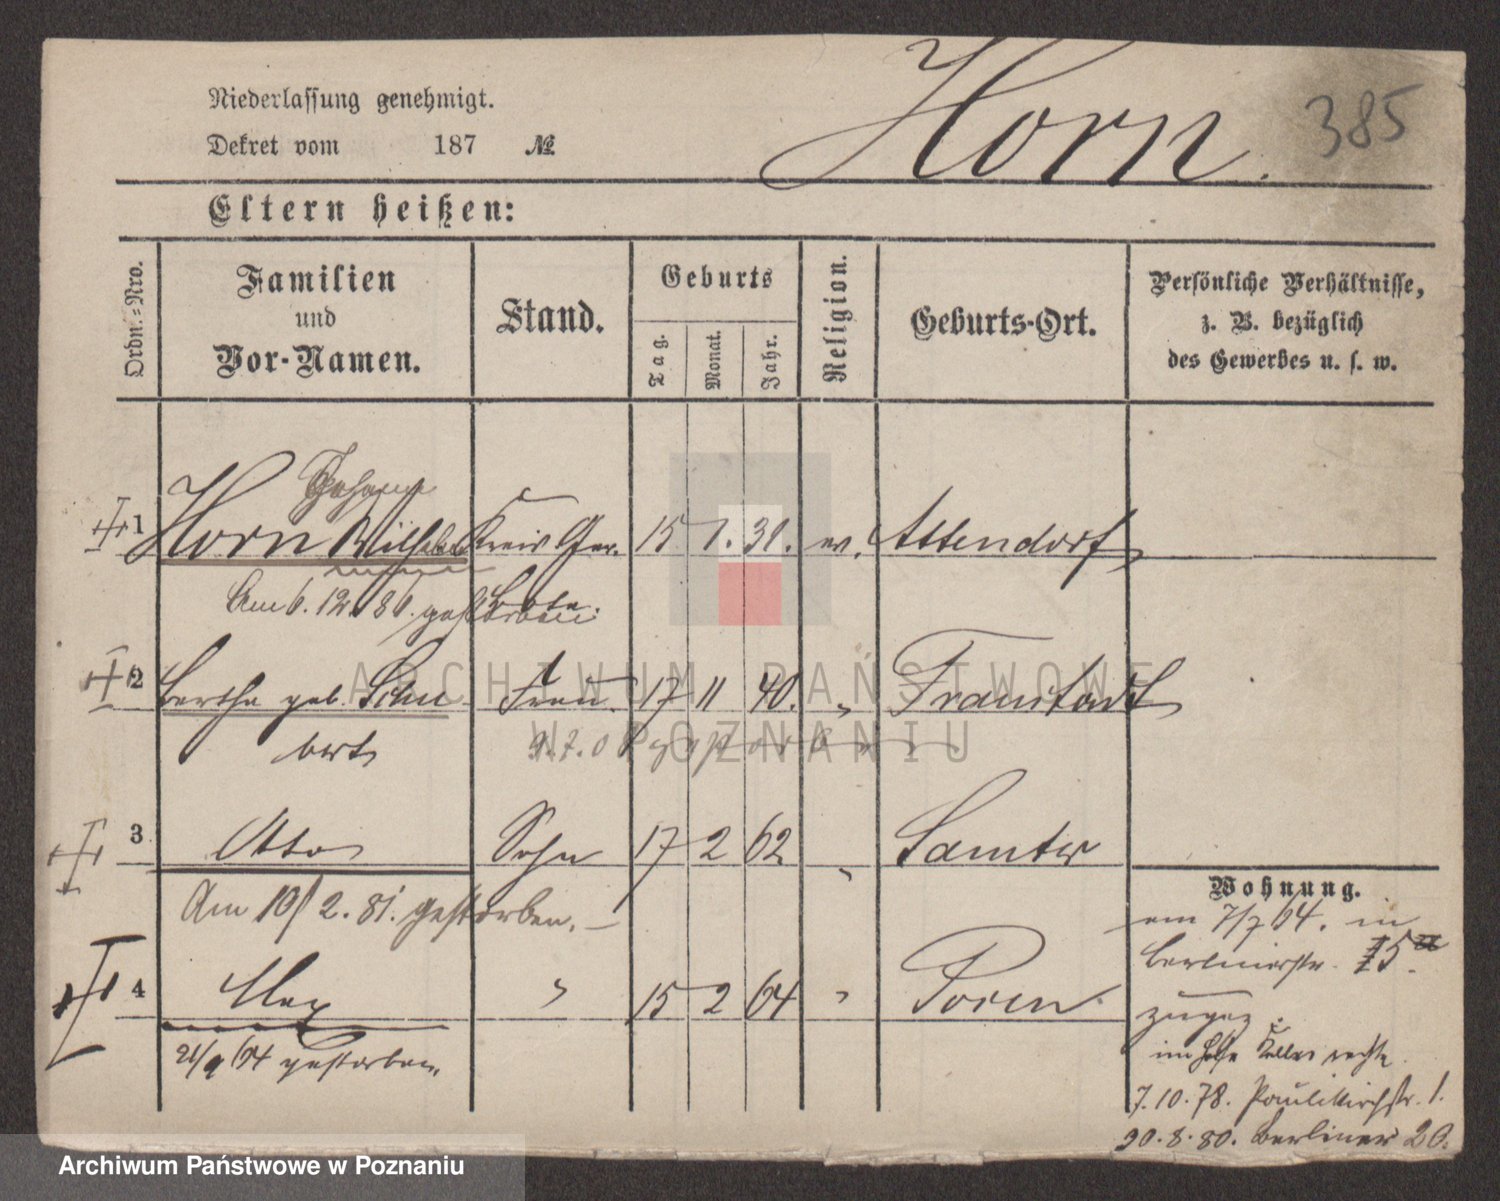 Niederlassung genehmigt.
Horn.
385
Dekret vom 187 №
Eltern heißen:
Ordn.-Nro.
Familien
und
Vor-Namen.
Stand.
Geburts
Tag.
Monat.
Jahr.
Religion.
Geburts-Ort.
Persönliche Verhältnisse,
z. B. bezüglich
des Gewerbes u. s. w.
Johann
1 Horn Wilhelm Kreis Ger. 15 1. 31. ev. Attendorf
Bote.
Am 6. 12. 86. gestorben
2 Bertha geb. Schu Frau 17 11 40. " Fraustadt
bert
gestorben
3 Otto Sohn 17 2 62 " Samter
Am 10/2. 81. gestorben. –
4 Max " 15 2 64 " Posen
21/9 64 gestorben.
Wohnung.
am 7/7 64. in
Berlinerstr. 15
zugez.
im Hofe Keller rechts
7.10.78. Paulikirchstr. 1.
20.8.80. Berliner 20.
ARCHIWUM PAŃSTWOWE
W POZNANIU
Archiwum Państwowe w Poznaniu